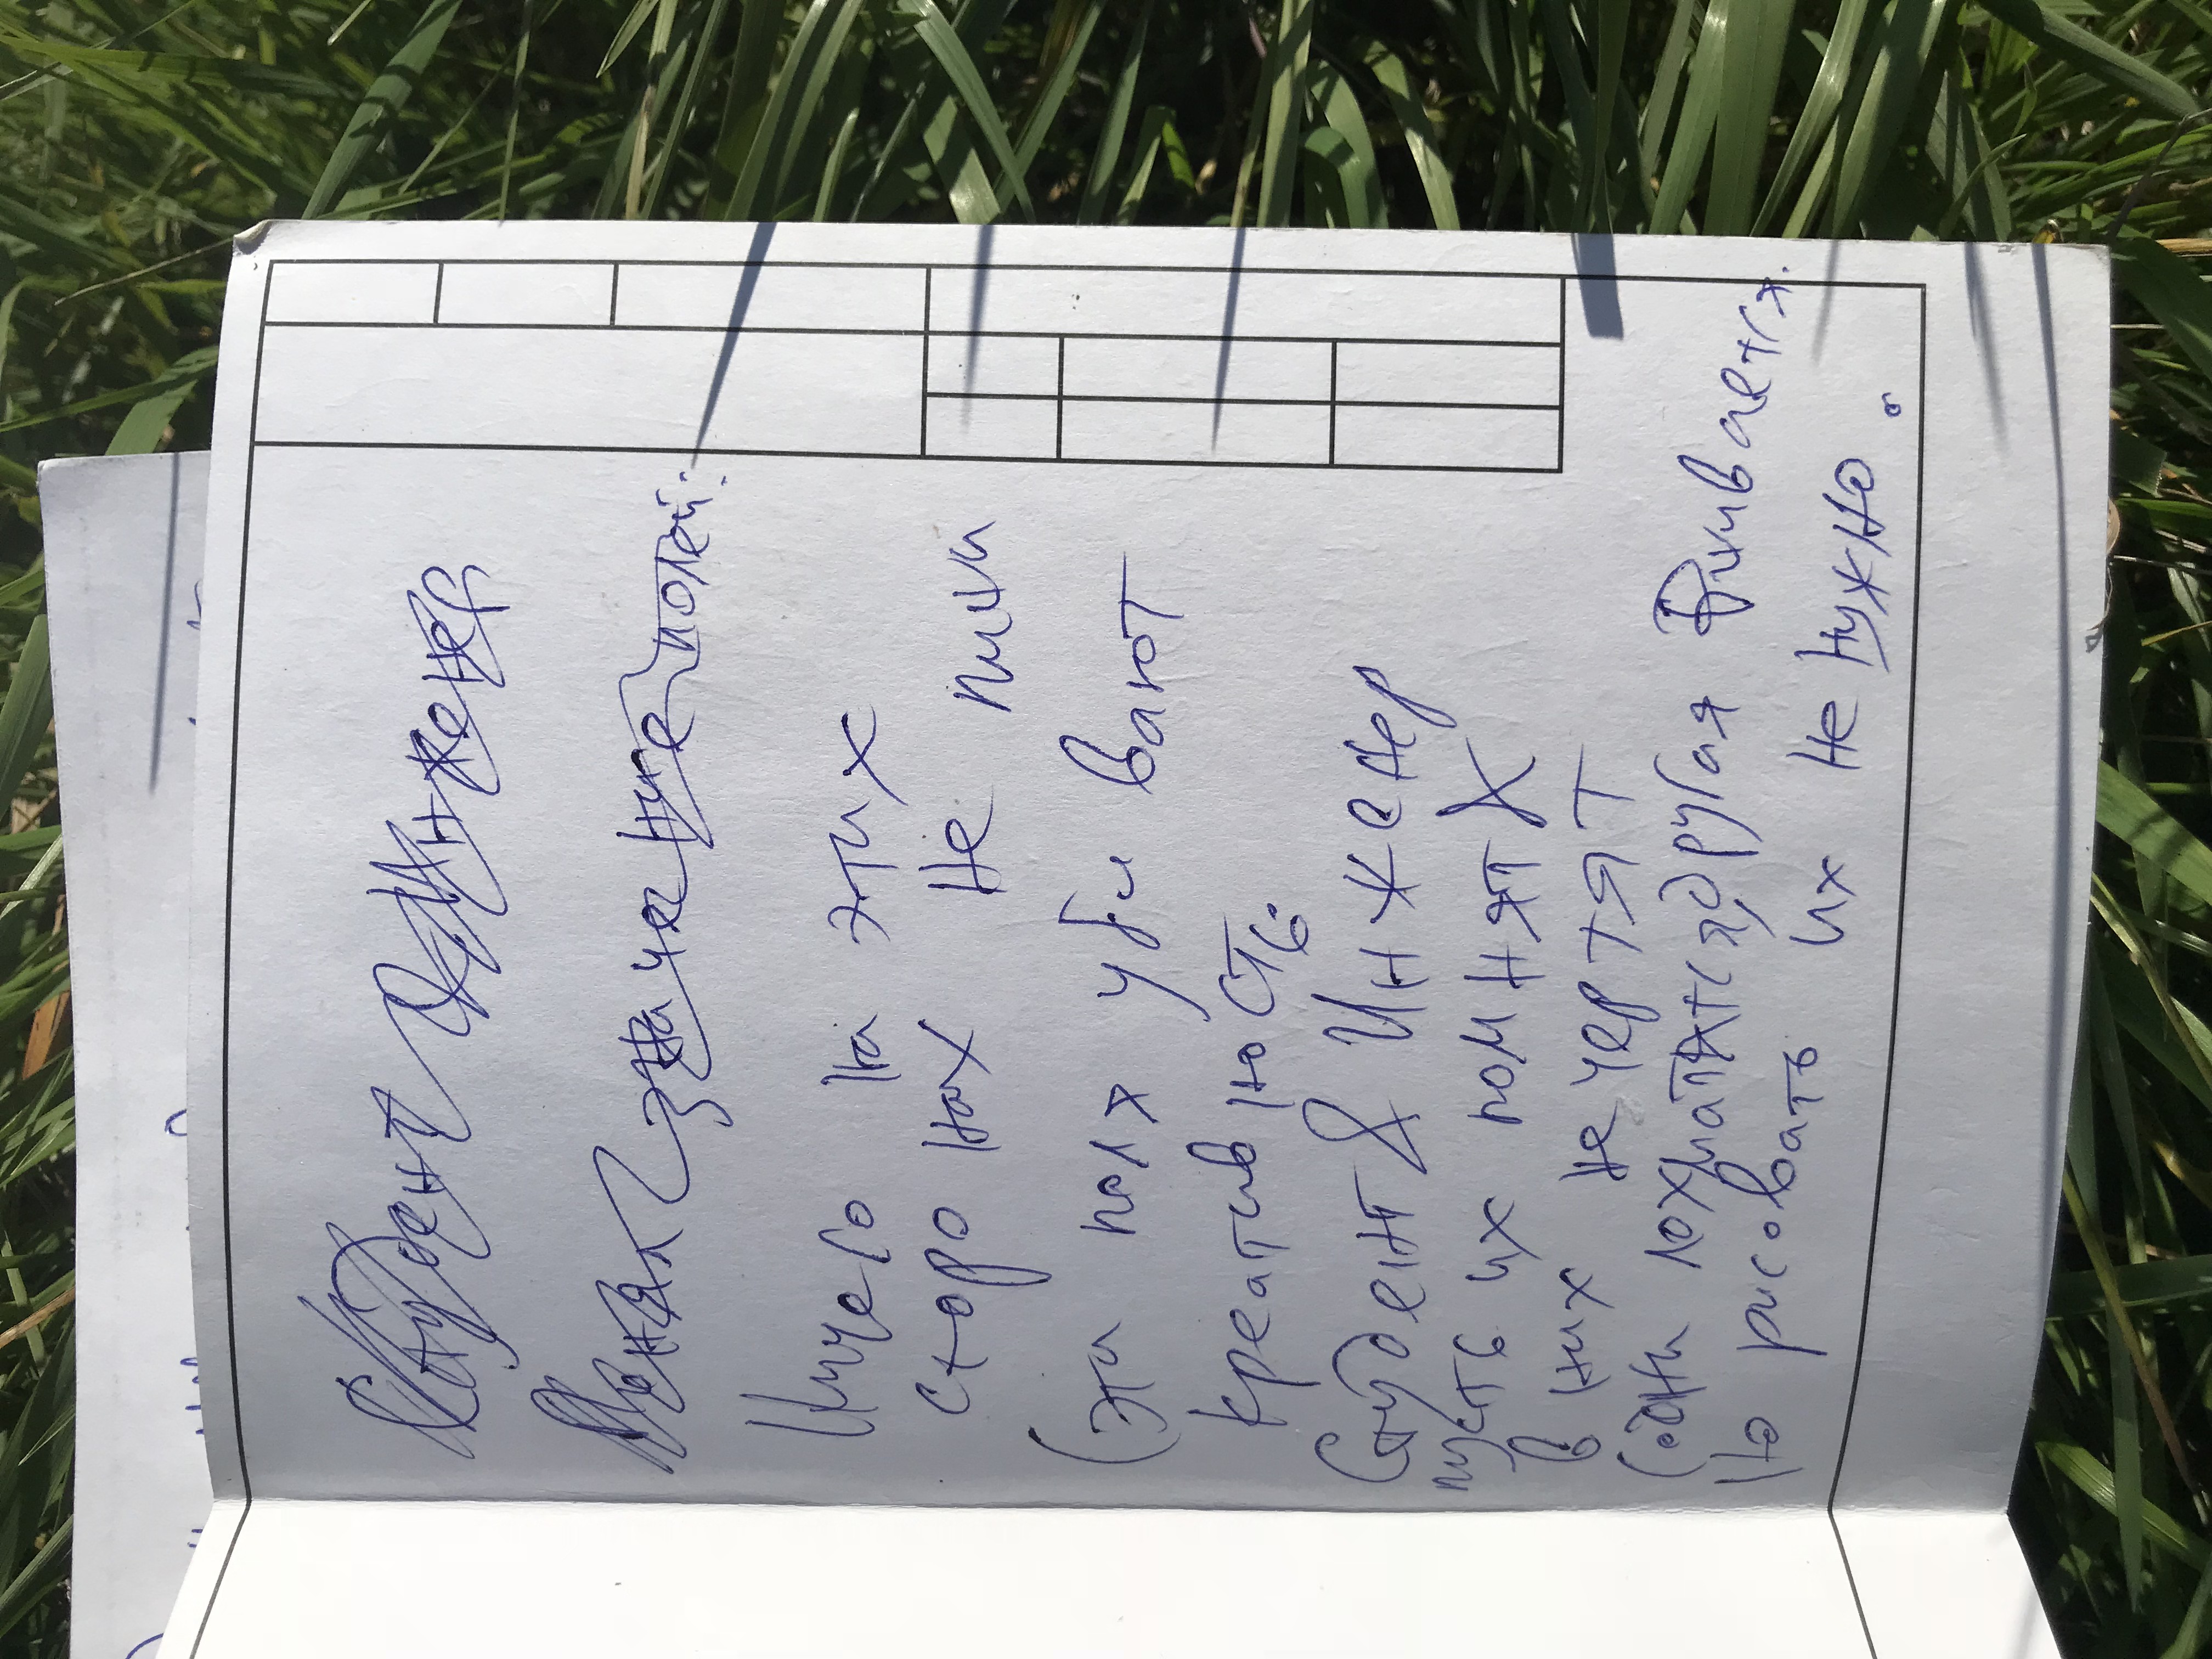 Студент & Инженер
Менял значение полей:
Ничего на этих
сторонах не пиши
(эти поля убивают
креативность.
Студент & Инженер
пусть их помнят &
в них не чертят
(одни лохматятся, другая вшивается.
Но рисовать их не нужно.